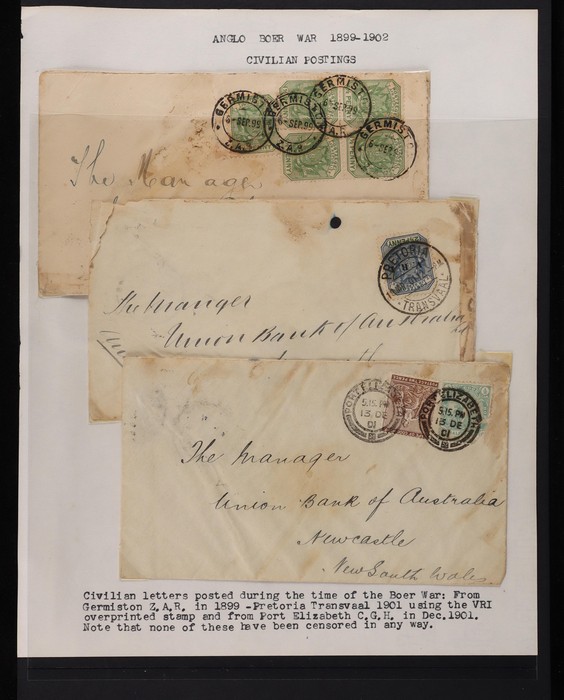 ANGLO BOER WAR 1899-1902
CIVILIAN POSTINGS
GERMISTON
6-SEP.99
Z.A.R.
GERMISTON
6-SEP.99
Z.A.R.
GERMISTON
6-SEP.99
Z.A.R.
GERMISTON
6-SEP.99
The Manager
PRETORIA
TRANSVAAL
The Manager
Union Bank of Australia
PORT ELIZABETH
5.15.PM
13 DE
01
PORT ELIZABETH
5.15.PM
13 DE
01
The Manager
Union Bank of Australia
Newcastle
New South Wales.
Civilian letters posted during the time of the Boer War: From
Germiston Z.A.R. in 1899 -Pretoria Transvaal 1901 using the VRI
overprinted stamp and from Port Elizabeth C.G.H. in Dec.1901.
Note that none of these have been censored in any way.